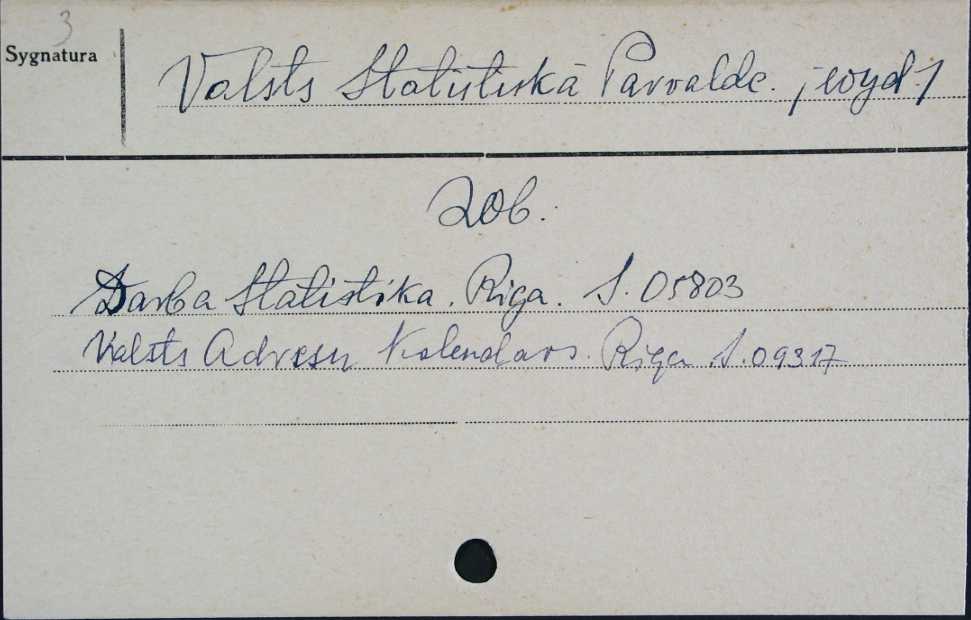 3
Sygnatura
Valsts Statistiskā Parvalde. /wyd./
Zob.
Darba Statistika. Riga. S. 05803
Valsts Adresu Kalendars. Riga S. 09317